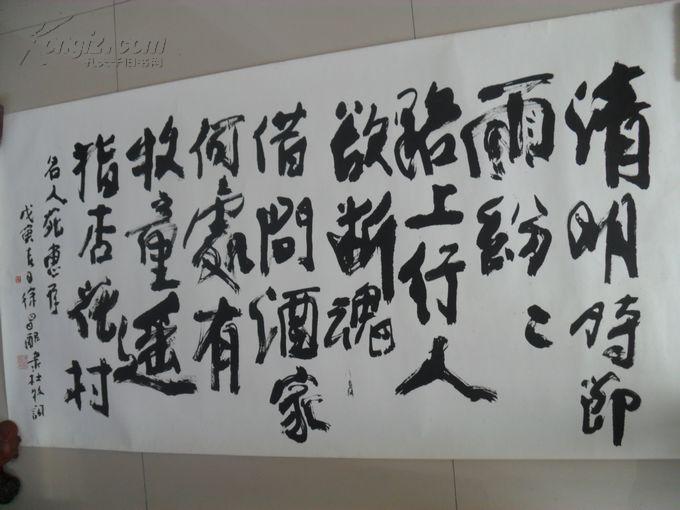 清明時節
雨紛〻
路上行人
欲断魂
借問酒家
何處有
牧童遥
指杏花村
名人苑惠存
戊寅春日徐昌酩書杜牧詞
Kongfz.com
孔夫子旧书网